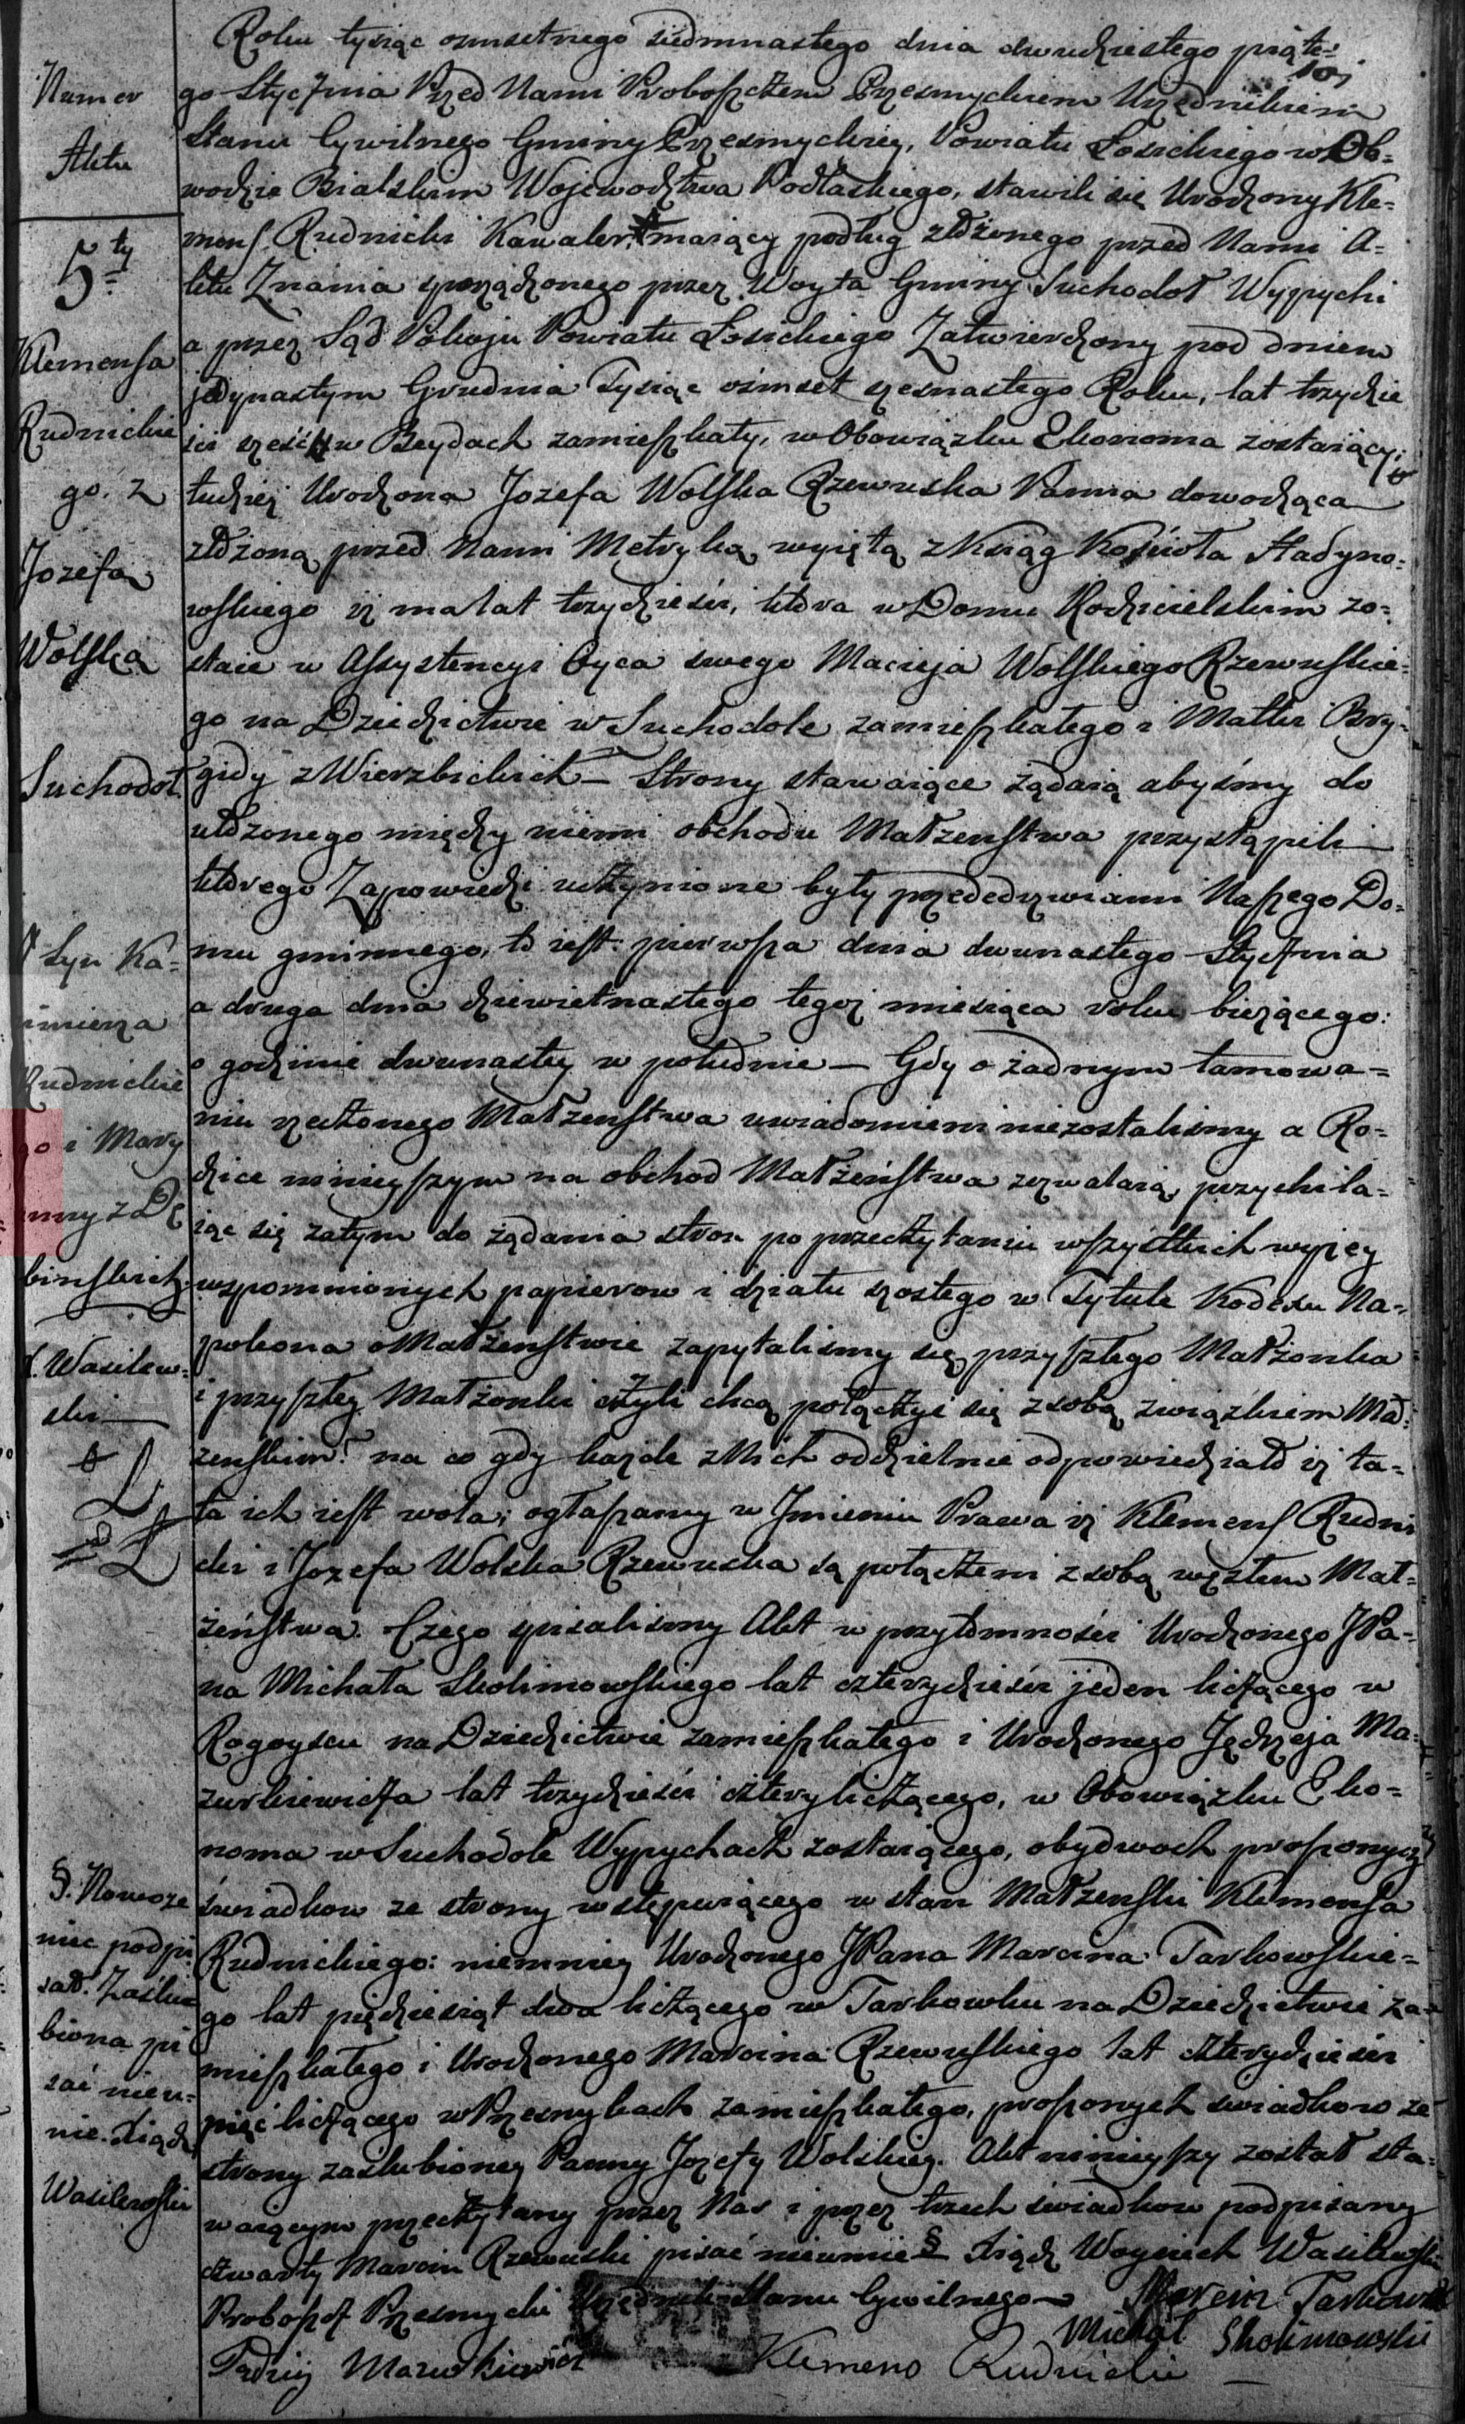 Numer
Aktu
5.ty
Klemensa
Rudnickie
go. z
Jozefą
Wolską
Suchodoł
Syn Ka=
imierza
Rudnickie
go i Mary
anny z Dę
binskich.
X. Wasilew=
ski
§. Nowoże
niec podpi
sał. Zaślu
biona pi
sać nieu=
mie. Xiądz
Wasilewski
Roku tysiąc osmsetnego siedmnastego dnia dwudziestego piąte=
go Stycznia Przed Nami Proboszczem Przesmyckiem Urzędnikiem
Stanu Cywilnego Gminy Przesmyckiey, Powiatu Łosickiego w Ob=
wodzie Bialskim Wojewodztwa Podlaskiego, stawili się Urodzony Kle=
mens Rudnicki Kawaler, maiący podług złożonego przed Nami A=
ktu Znania sporządzonego przez Woyta Gminy Suchodoł Wypychi
a przez Sąd Pokoju Powiatu Łosickiego Zatwierdzony pod dniem
jedynastym Grudnia Tysiąc ośmset szesnastego Roku, lat trzydzie
ści sześć w Beydach zamieszkały, w Obowiązku Ekonoma zostaiący;
tudzież Urodzona Jozefa Wolska Rzewuska Panna dowodząca
złożoną przed Nami Metryką wyiętą z Ksiąg Kościoła Hadyno=
wskiego iż ma lat trzydzieści, ktora w Domu Rodzicielskim zo=
staie w Assystencyi Oyca swego Macieja Wolskiego Rzewuskie=
go na Dziedzictwie w Suchodole zamieszkałego i Matki Bry=
gidy z Wierzbickich — Strony stawaiące żądaią abyśmy do
ułożonego między niemi obchodu Małżenstwa przystąpili
ktorego Zapowiedzi uczynione były przededrzwiami Naszego Do=
mu gminnego, to iest: pierwsza dnia dwunastego Stycznia
a druga dnia dziewietnastego tegoż miesiąca roku bieżącego:
o godzinie dwunastey w południe — Gdy o żadnym tamowa=
niu rzeczonego Małżenstwa uwiadomieni niezostaliśmy a Ro=
dzice ninieyszym na obchod Małżeństwa zezwalaią, przychyla=
iąc się zatym do żądania stron po przeczytaniu wszystkich wyżey
wspomnionych papierow i działu szostego w Tytule Kodexu Na=
poleona o Małżenstwie zapytaliśmy się przyszłego Małżonka
i przyszłey Małżonki czyli chcą połączyć się z sobą związkiem Mał=
żenskim? na co gdy każde z Nich oddzielnie odpowiedziało iż ta=
ka ich iest wola; ogłaszamy w Jmieniu Prawa iż Klemens Rudni
cki i Jozefa Wolska Rzewuska są połączeni z sobą węzłem Mał=
żeństwa. Czego spisaliśmy Akt w przytomności Urodzonego JPa=
na Michała Skolimowskiego lat czterydzieści jeden liczącego w
Rogoyscu na Dziedzictwie zamieszkałego i Urodzonego Jędrzeja Ma=
zurkiewicza lat trzydzieści cztery liczącego, w Obowiązku Eko=
noma w Suchodole Wypychach zostaiącego, obydwoch proszonych
świadkow ze strony wstępuiącego w stan Małżenski Klemensa
Rudnickiego: niemniey Urodzonego JPana Marcina Tarkowskie=
go lat pięćdziesiąt dwa liczącego w Tarkowku na Dziedzictwie za=
mieszkałego i Urodzonego Marcina Rzewuskiego lat czterydzieści
pięć liczącego w Przesmykach zamieszkałego, proszonych swiadkow ze
strony zaślubioney Panny Jozefy Wolskiey. Akt ninieyszy został sta=
waiącym przeczytany przez Nas i przez trzech świadkow podpisany
czwarty Marcin Rzewuski pisać nieumie § Xiądz Woyciech Wasilewski
Proboszcz Przesmycki Urzędnik Stanu Cywilnego Marcin Tarkowski
Michał Skolimowski
Jędrzej Mazurkiewicz Klemens Rudnicki